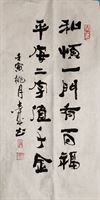 和順一門有百福
平安二字值千金
壬寅桃月